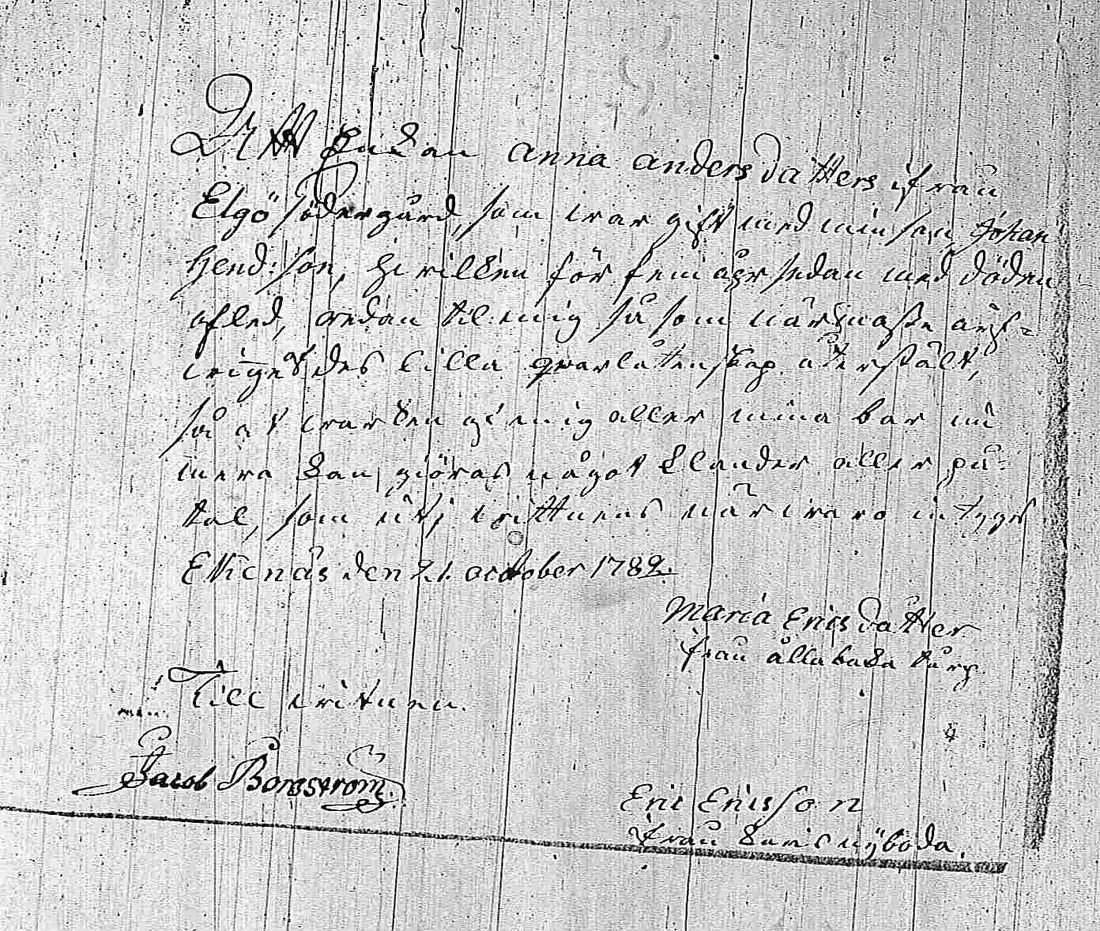 Att Enkan Anna Anders Datters ifrån
Elgö södergård, som war gift med min son Johan
Hend:son, hvilken för fem åhr sedan med döden
afled, redan til mig så som närmaste arf-
winge des lilla qvarlåtenskap återstält,
så at warken af mig aller mina bar nu
mera kan giöras något klander aller på-
tal, som uti wittnens närwaro intyges
Ekenäs den 21. october 1782.
Maria Erics Datter
från torp
Till witnen.
Jacob Borgström
Eric Ericsson
från Karis Nÿboda.